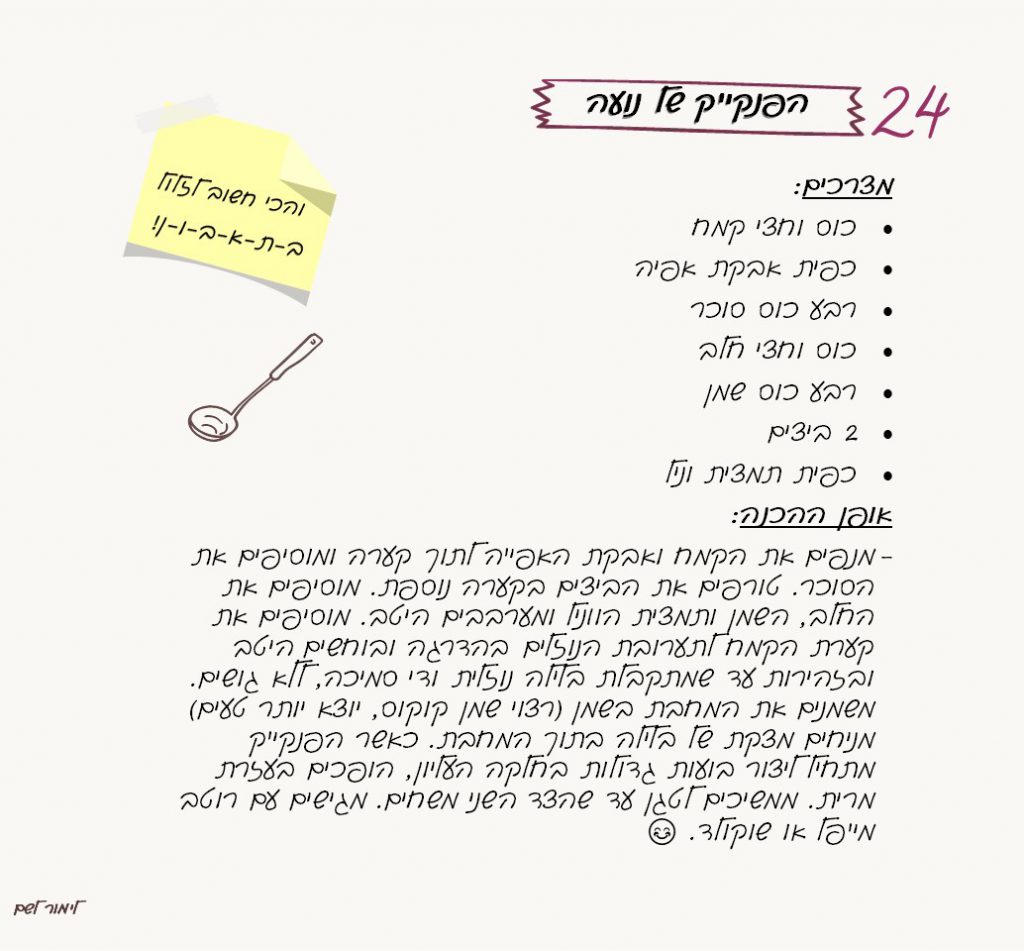 24
הפנקייק של נועה
והכי חשוב לזלול
ב-ת-א-ב-ו-ן!
מצרכים:
• כוס וחצי קמח
• כפית אבקת אפיה
• רבע כוס סוכר
• כוס וחצי חלב
• רבע כוס שמן
• 2 ביצים
• כפית תמצית וניל
אופן ההכנה:
- מנפים את הקמח ואבקת האפייה לתוך קערה ומוסיפים את
הסוכר. טורפים את הביצים בקערה נוספת. מוסיפים את
החלב, השמן ותמצית הווניל ומערבבים היטב. מוסיפים את
קערת הקמח לתערובת הנוזלים בהדרגה ובוחשים היטב
ובזהירות עד שמתקבלת בלילה נוזלית ודי סמיכה, ללא גושים.
משמנים את המחבת בשמן (רצוי שמן קוקוס, יוצא יותר טעים)
מניחים מצקת של בלילה בתוך המחבת. כאשר הפנקייק
מתחיל ליצור בועות גדולות בחלקה העליון, הופכים בעזרת
מרית. ממשיכים לטגן עד שהצד השני משחים. מגישים עם רוטב
מייפל או שוקולד. 😊
לימור לשם